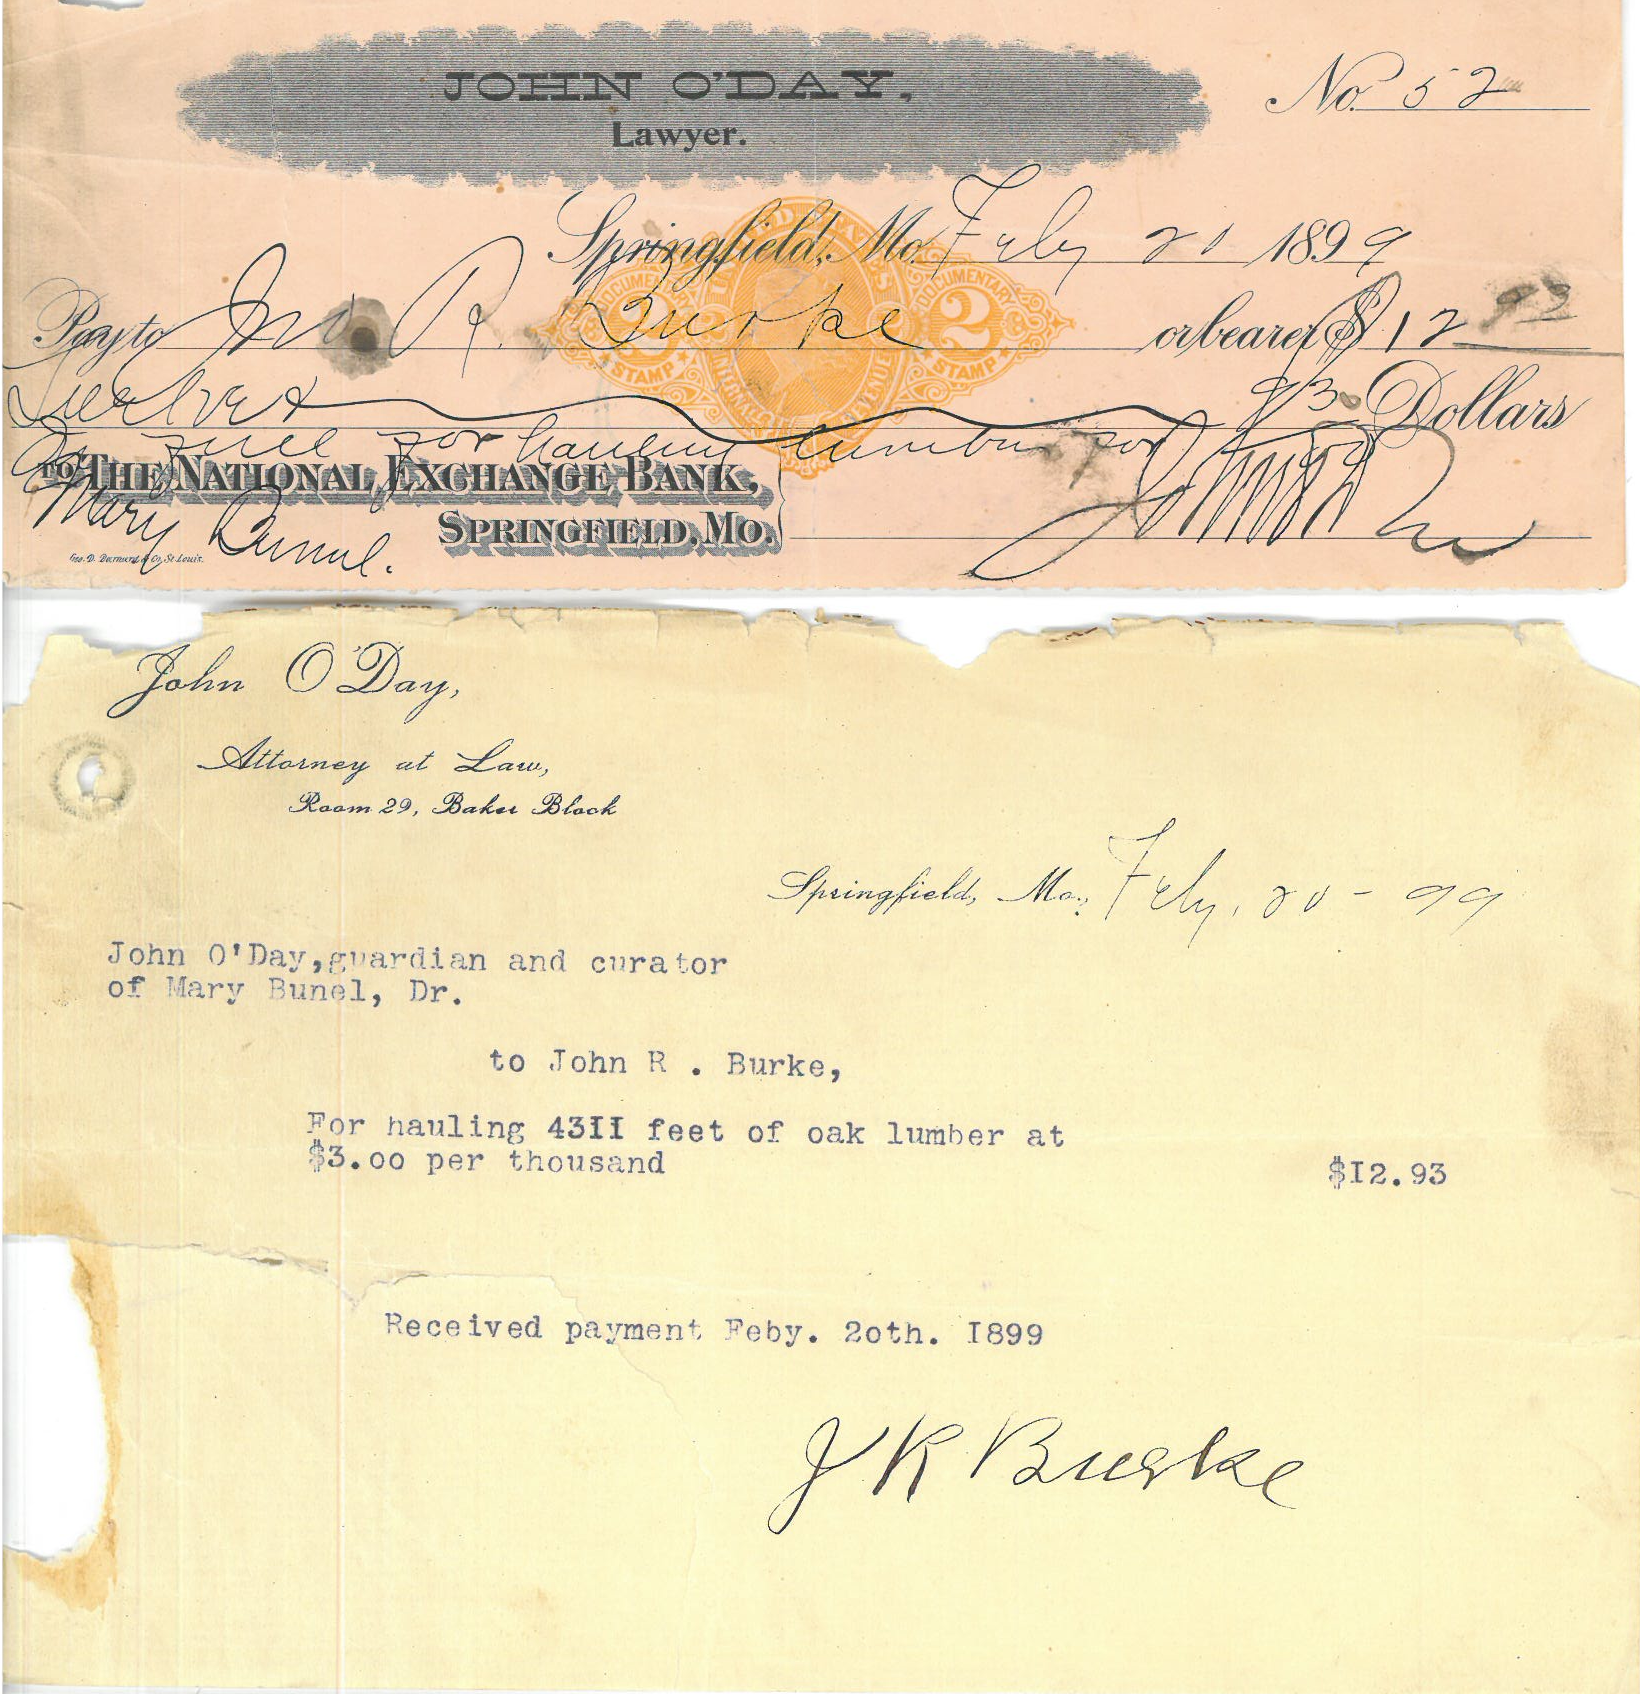 JOHN O'DAY,
Lawyer.
No. 52
Springfield, Mo. Feby 20 1899
Pay to Jno R. Burke or bearer $ 12 93
Twelve & 93 Dollars
In full for hauling lumber for
Mary Bunel.
TO THE NATIONAL EXCHANGE BANK,
SPRINGFIELD, MO.
Geo. D. Barnard & Co. St. Louis.
UNITED STATES
DOCUMENTARY DOCUMENTARY
2 2
STAMP STAMP
INTERNAL REVENUE
John O'Day,
Attorney at Law,
Room 29, Baker Block
Springfield, Mo., Feby, 20 - 99
John O'Day,guardian and curator
of Mary Bunel, Dr.
to John R . Burke,
For hauling 43II feet of oak lumber at
$3.oo per thousand $I2.93
Received payment Feby. 2oth. I899
J R Burke